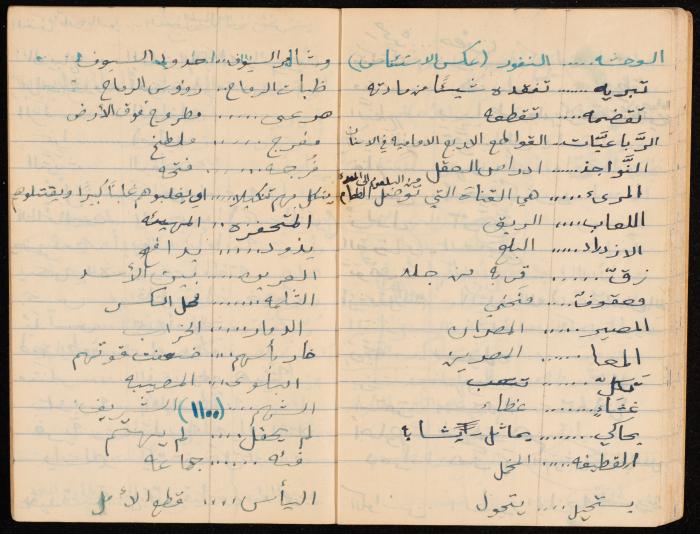 الوحشة..... النفور (عكس الاستئناس)
تبريه...... تفقده شيئًا من مادته
تقضمه..... تقطعه
الرَّباعيَّات... القواطع الاربع الامامية في الاسنان
النَّواجذ.... اضراس العقل
المريء..... هي القناة التي توصل الطعام من البلعوم الى المعدة
اللعاب..... الريق
الازدراد..... البلع
زقّ...... قربة من جلد
معقوف..... منحني
المصير..... المصران
المعا...... المصرين
تكلّ...... تتعب
غشاء...... غطاء
يحاكي........ يماثل يشابه
القطيفة..... المخمل
يستحيل.... يتحول
وشالحد السيوف... حدود السيوف
ظبات الرماح.. رؤوس الرماح
صرعى...... مطروح فوق الأرض
مضرج..... ملطخ
فرجة.... فتحة
ينكل بهم تنكيلا... اي يغلبوهم غلباً كبيرًا ويقتلوهم
المتحفزة.... المهيئه
يذود..... يدافع
العرين..... بيت الأسد
الثلمة...... محل الكسر
الدمار.... الخراب
خار بأسهم... ضعفت قوتهم
البلوى... المصيبة
الشهم.... الشريف
(١١٠٠)
لم يحفل.... لم يهتم
فئة...... جماعة
اليأس.... قطع الأمل